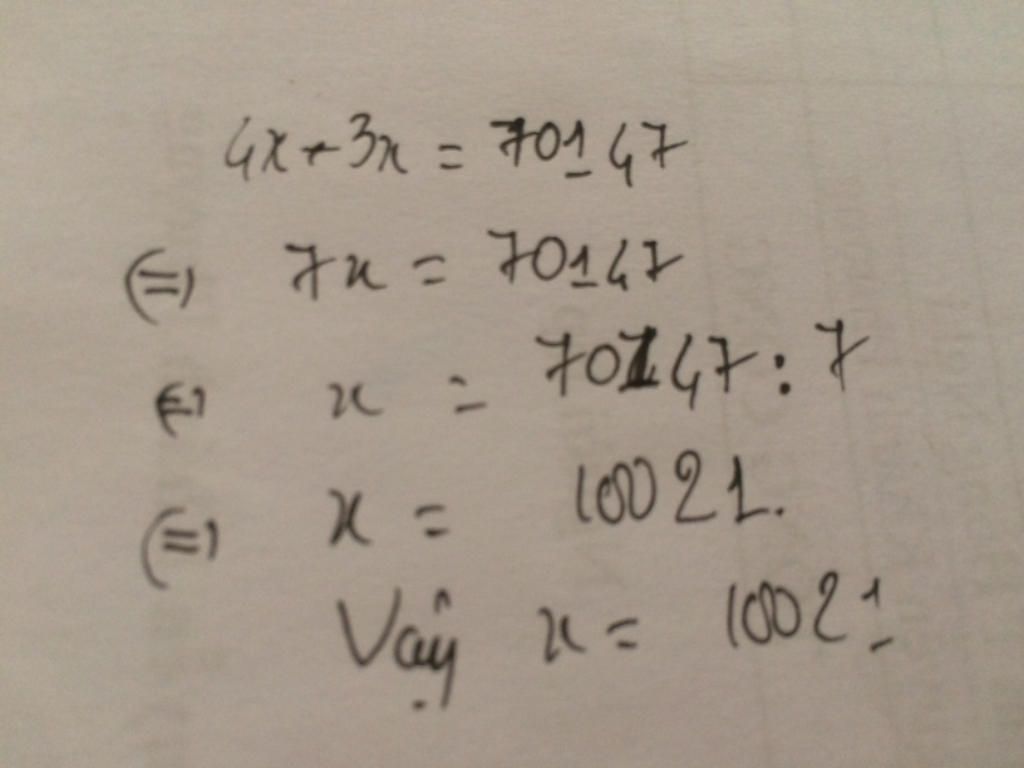 4x + 3x = 70147
(=) 7x = 70147
(=) x = 70147 : 7
(=) x = 10021.
Vậy x = 10021